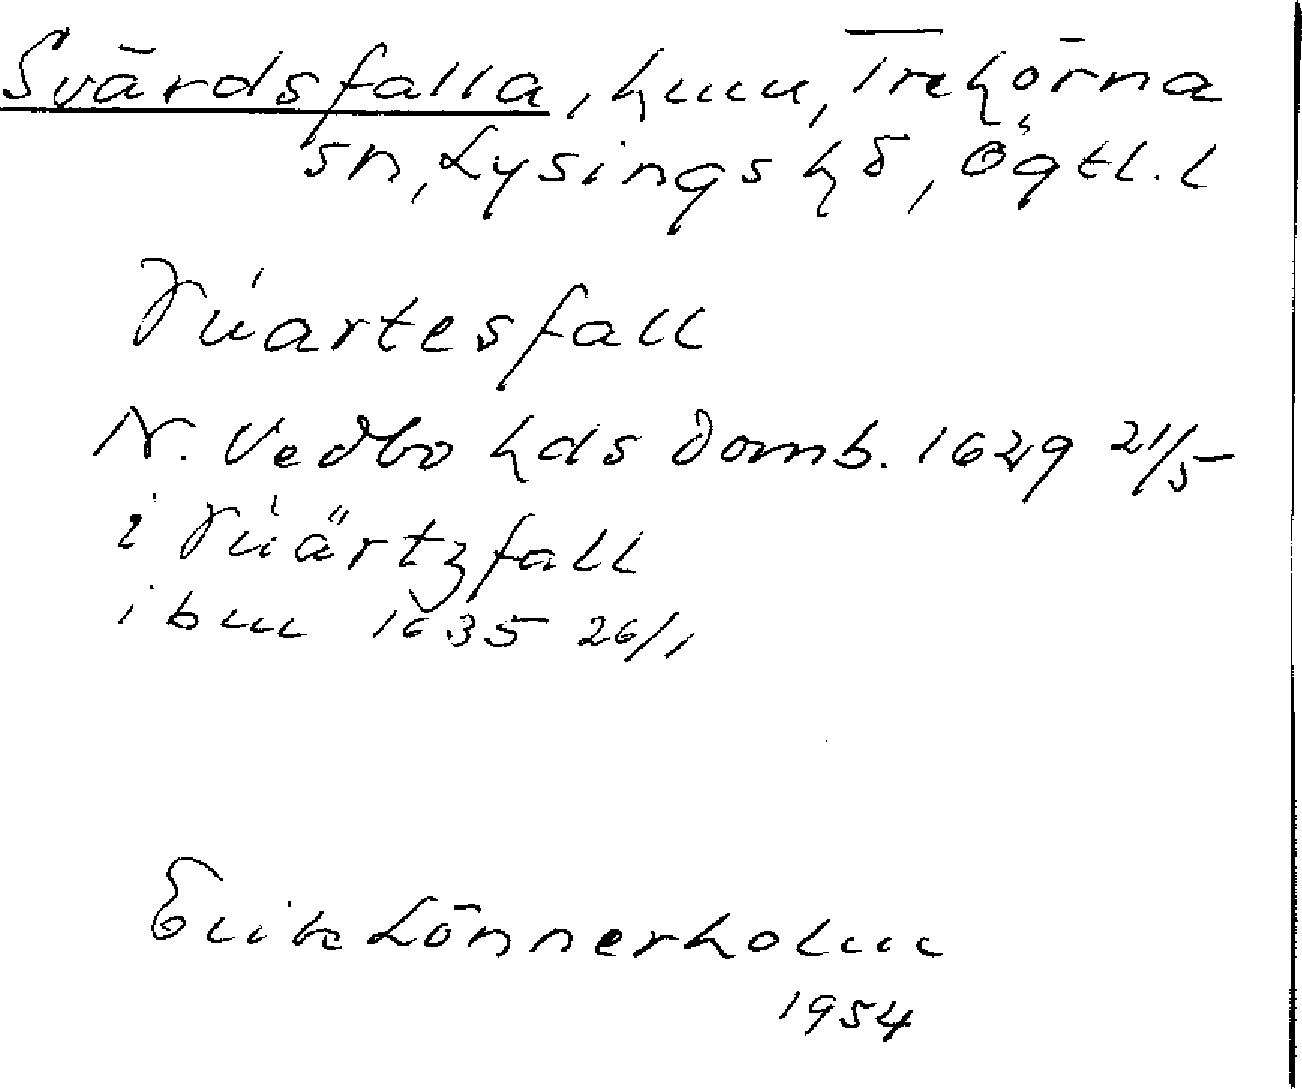 Svärdsfalla, hmn, Trehörna
sn, Lysings hd, Ögtl. l
Suartesfall
N. Vedbo hds Domb. 1629 21/5
i Suärtzfall
ibm 1635 26/1
Erik Lönnerholm
1954